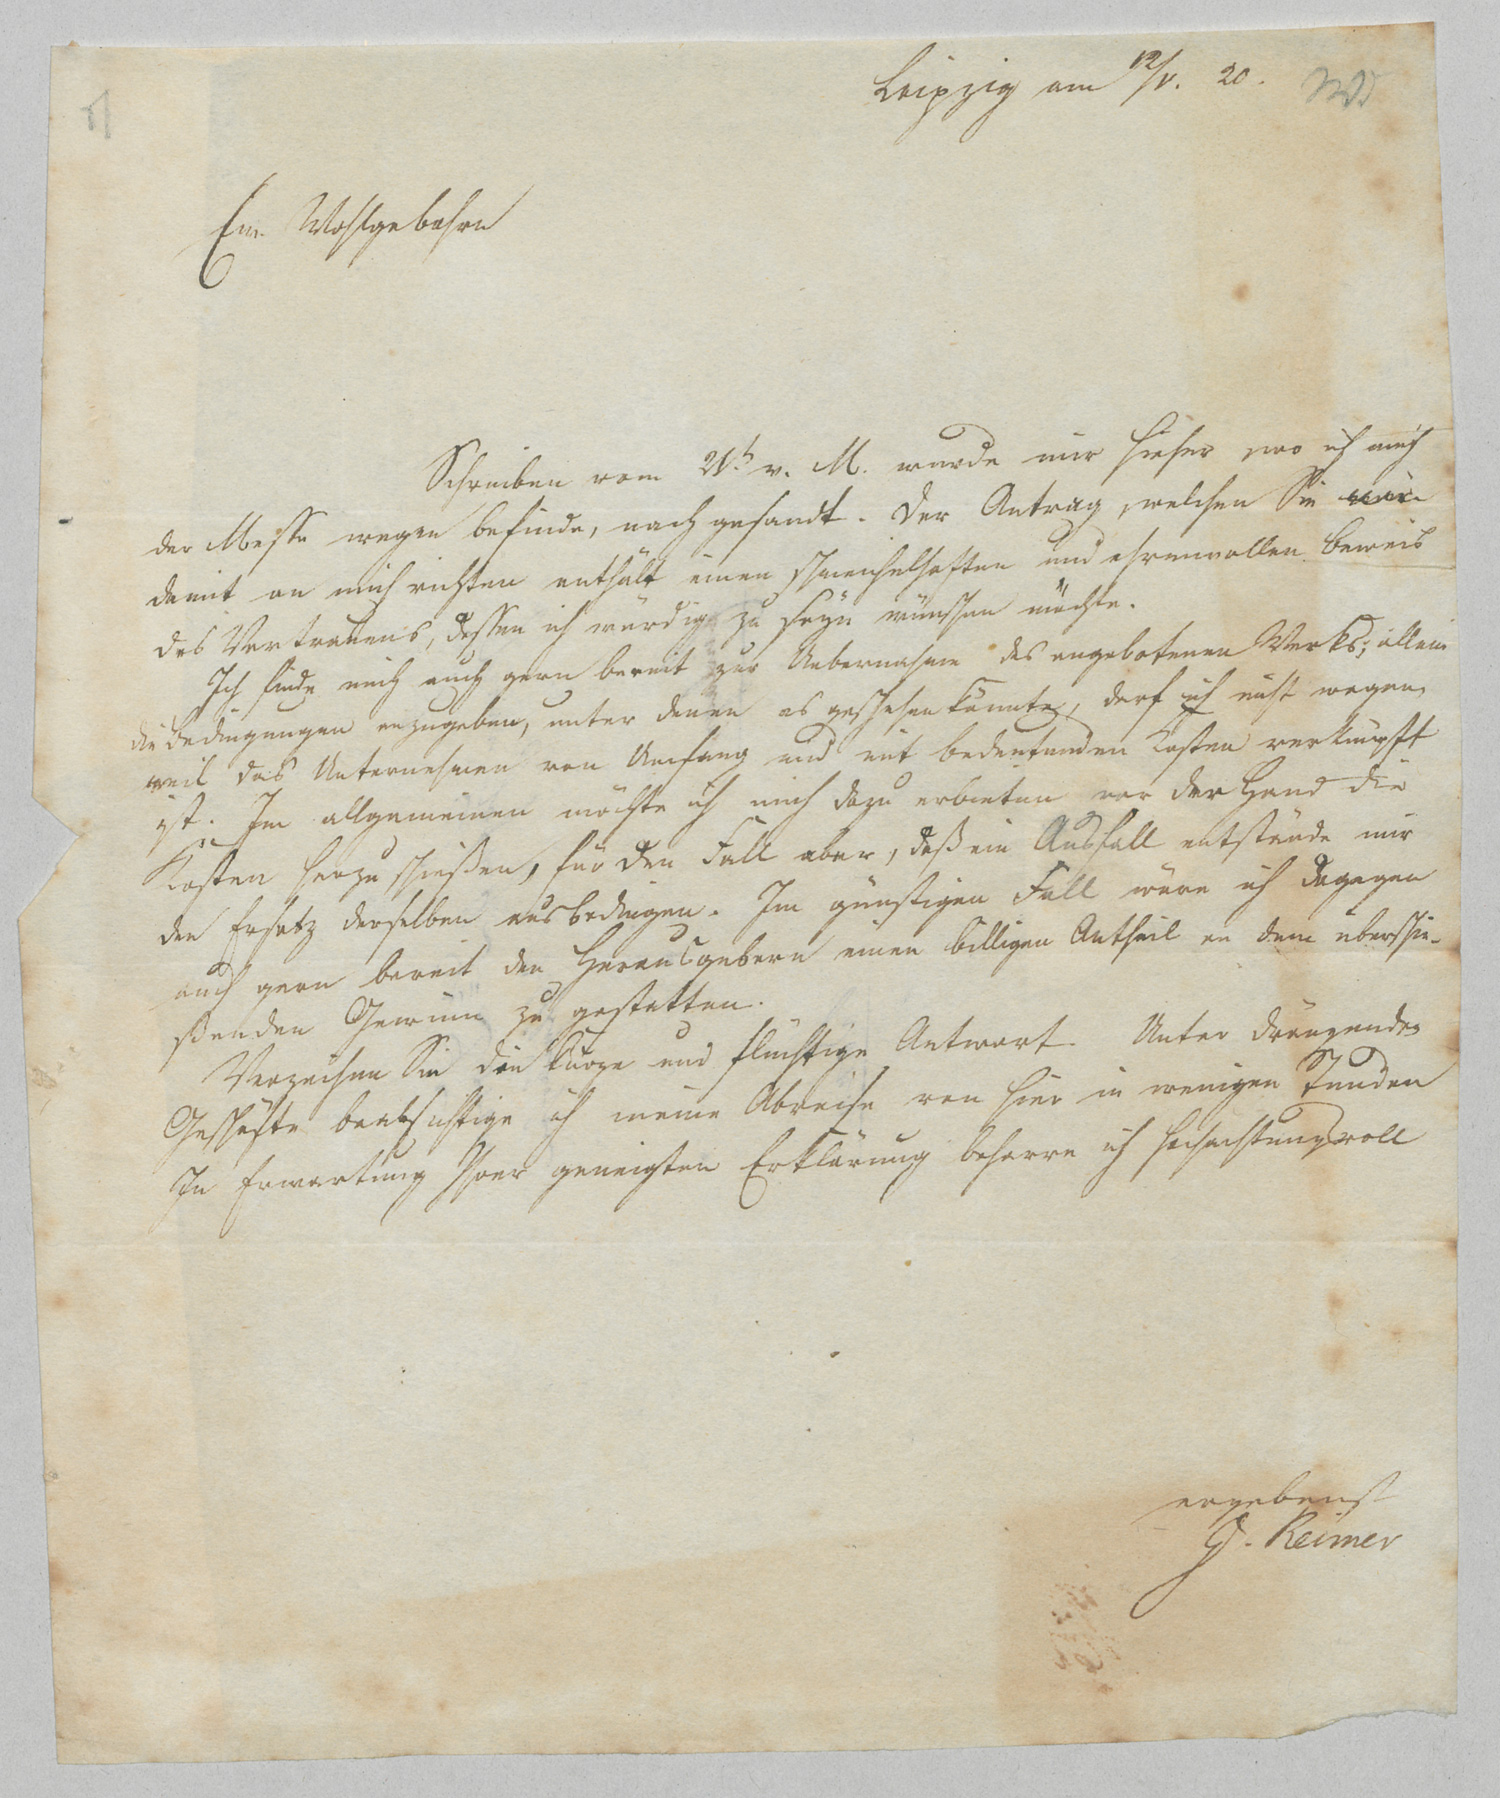 Leipzig am 12/V. 20.
Ew. Wohlgebohrn
Schreiben vom 21t v. M. wurde mir hieher, wo ich mich
der Messe wegen befinde, nachgesandt. Der Antrag, welchen Sie
damit an mich richten enthält einen schmeichelhaften und ehrenvollen Beweis
des Vertrauens, dessen ich würdig zu seyn wünschen möchte.
Ich finde mich auch gern bereit zur Uebernahme des angebotenen Werks; allein
die Bedingungen anzugeben, unter denen es geschehen könnte, darf ich nicht wagen,
weil das Unternehmen von Umfang und mit bedeutenden Kosten verknüpft
ist. Im allgemeinen möchte ich mich dazu erbieten vor der Hand die
Kosten herzuschießen, für den Fall aber, daß ein Ausfall entstände mir
den Ersatz derselben ausbedingen. Im günstigen Fall wäre ich dagegen
auch gern bereit den Herausgebern einen billigen Antheil an dem überschie-
ßenden Gewinn zu gestatten.
Verzeihen Sie die kurze und flüchtige Antwort. Unter drängender
Geschäfte beabsichtige ich meine Abreise von hier in wenigen Stunden
In Erwartung Ihrer geneigten Erklärung beharre ich hochachtungsvoll
ergebenst
G. Reimer